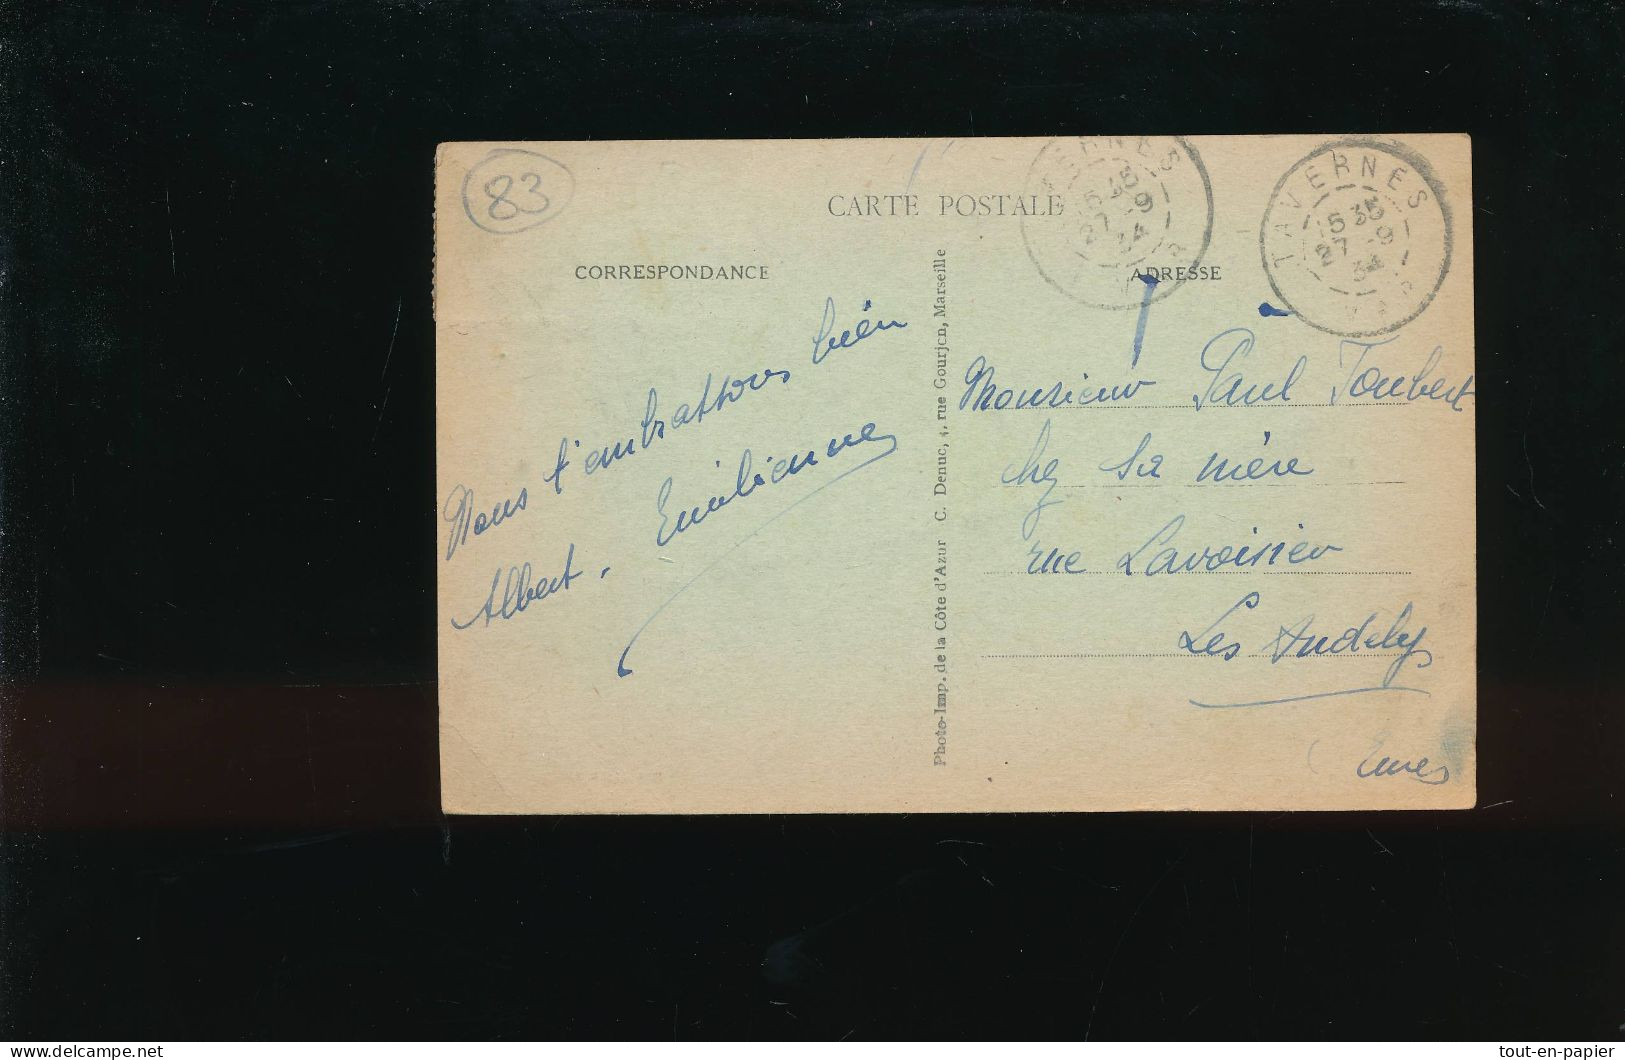 83
CARTE POSTALE
CORRESPONDANCE
ADRESSE
TAVERNES
5 35
27 -9
34
VAR
Nous t'embrassons bien
Albert. Emilienne
Photo-Imp. de la Côte d'Azur C. Denuc, 1, rue Gourjon, Marseille
Monsieur Paul Joubert
chez sa mère
rue Lavoisier
Les Andelys
Eure
delcampe.net
tout-en-papier